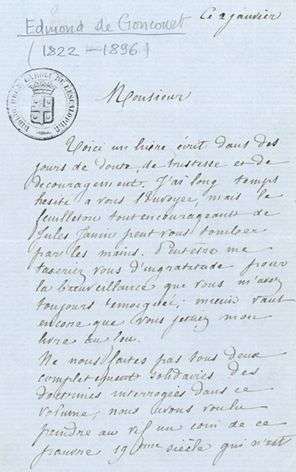 Edmond de Goncourt
(1822-1896)
Ce 2 janvier
Monsieur
Voici un livre écrit dans des
jours de doute, de tristesse et de
decouragement. J'ai long temps
hesité a vous l'envoyer, mais le
feuilleton tout encourageant de
Jules Janin peut vous tomber
par les mains. Peutetre me
taxeriez vous d'ingratitude pour
la bienveillance que vous m'avez
toujours temoignée; mieux vaut
encore que vous jetiez mon
livre au feu.
Ne nous faites pas tous deux
completement solidaires des
doctrines interrogées dans ce
volume; nous avons voulu
peindre au vif un coin de ce
pauvre 19ème siècle qui n'est